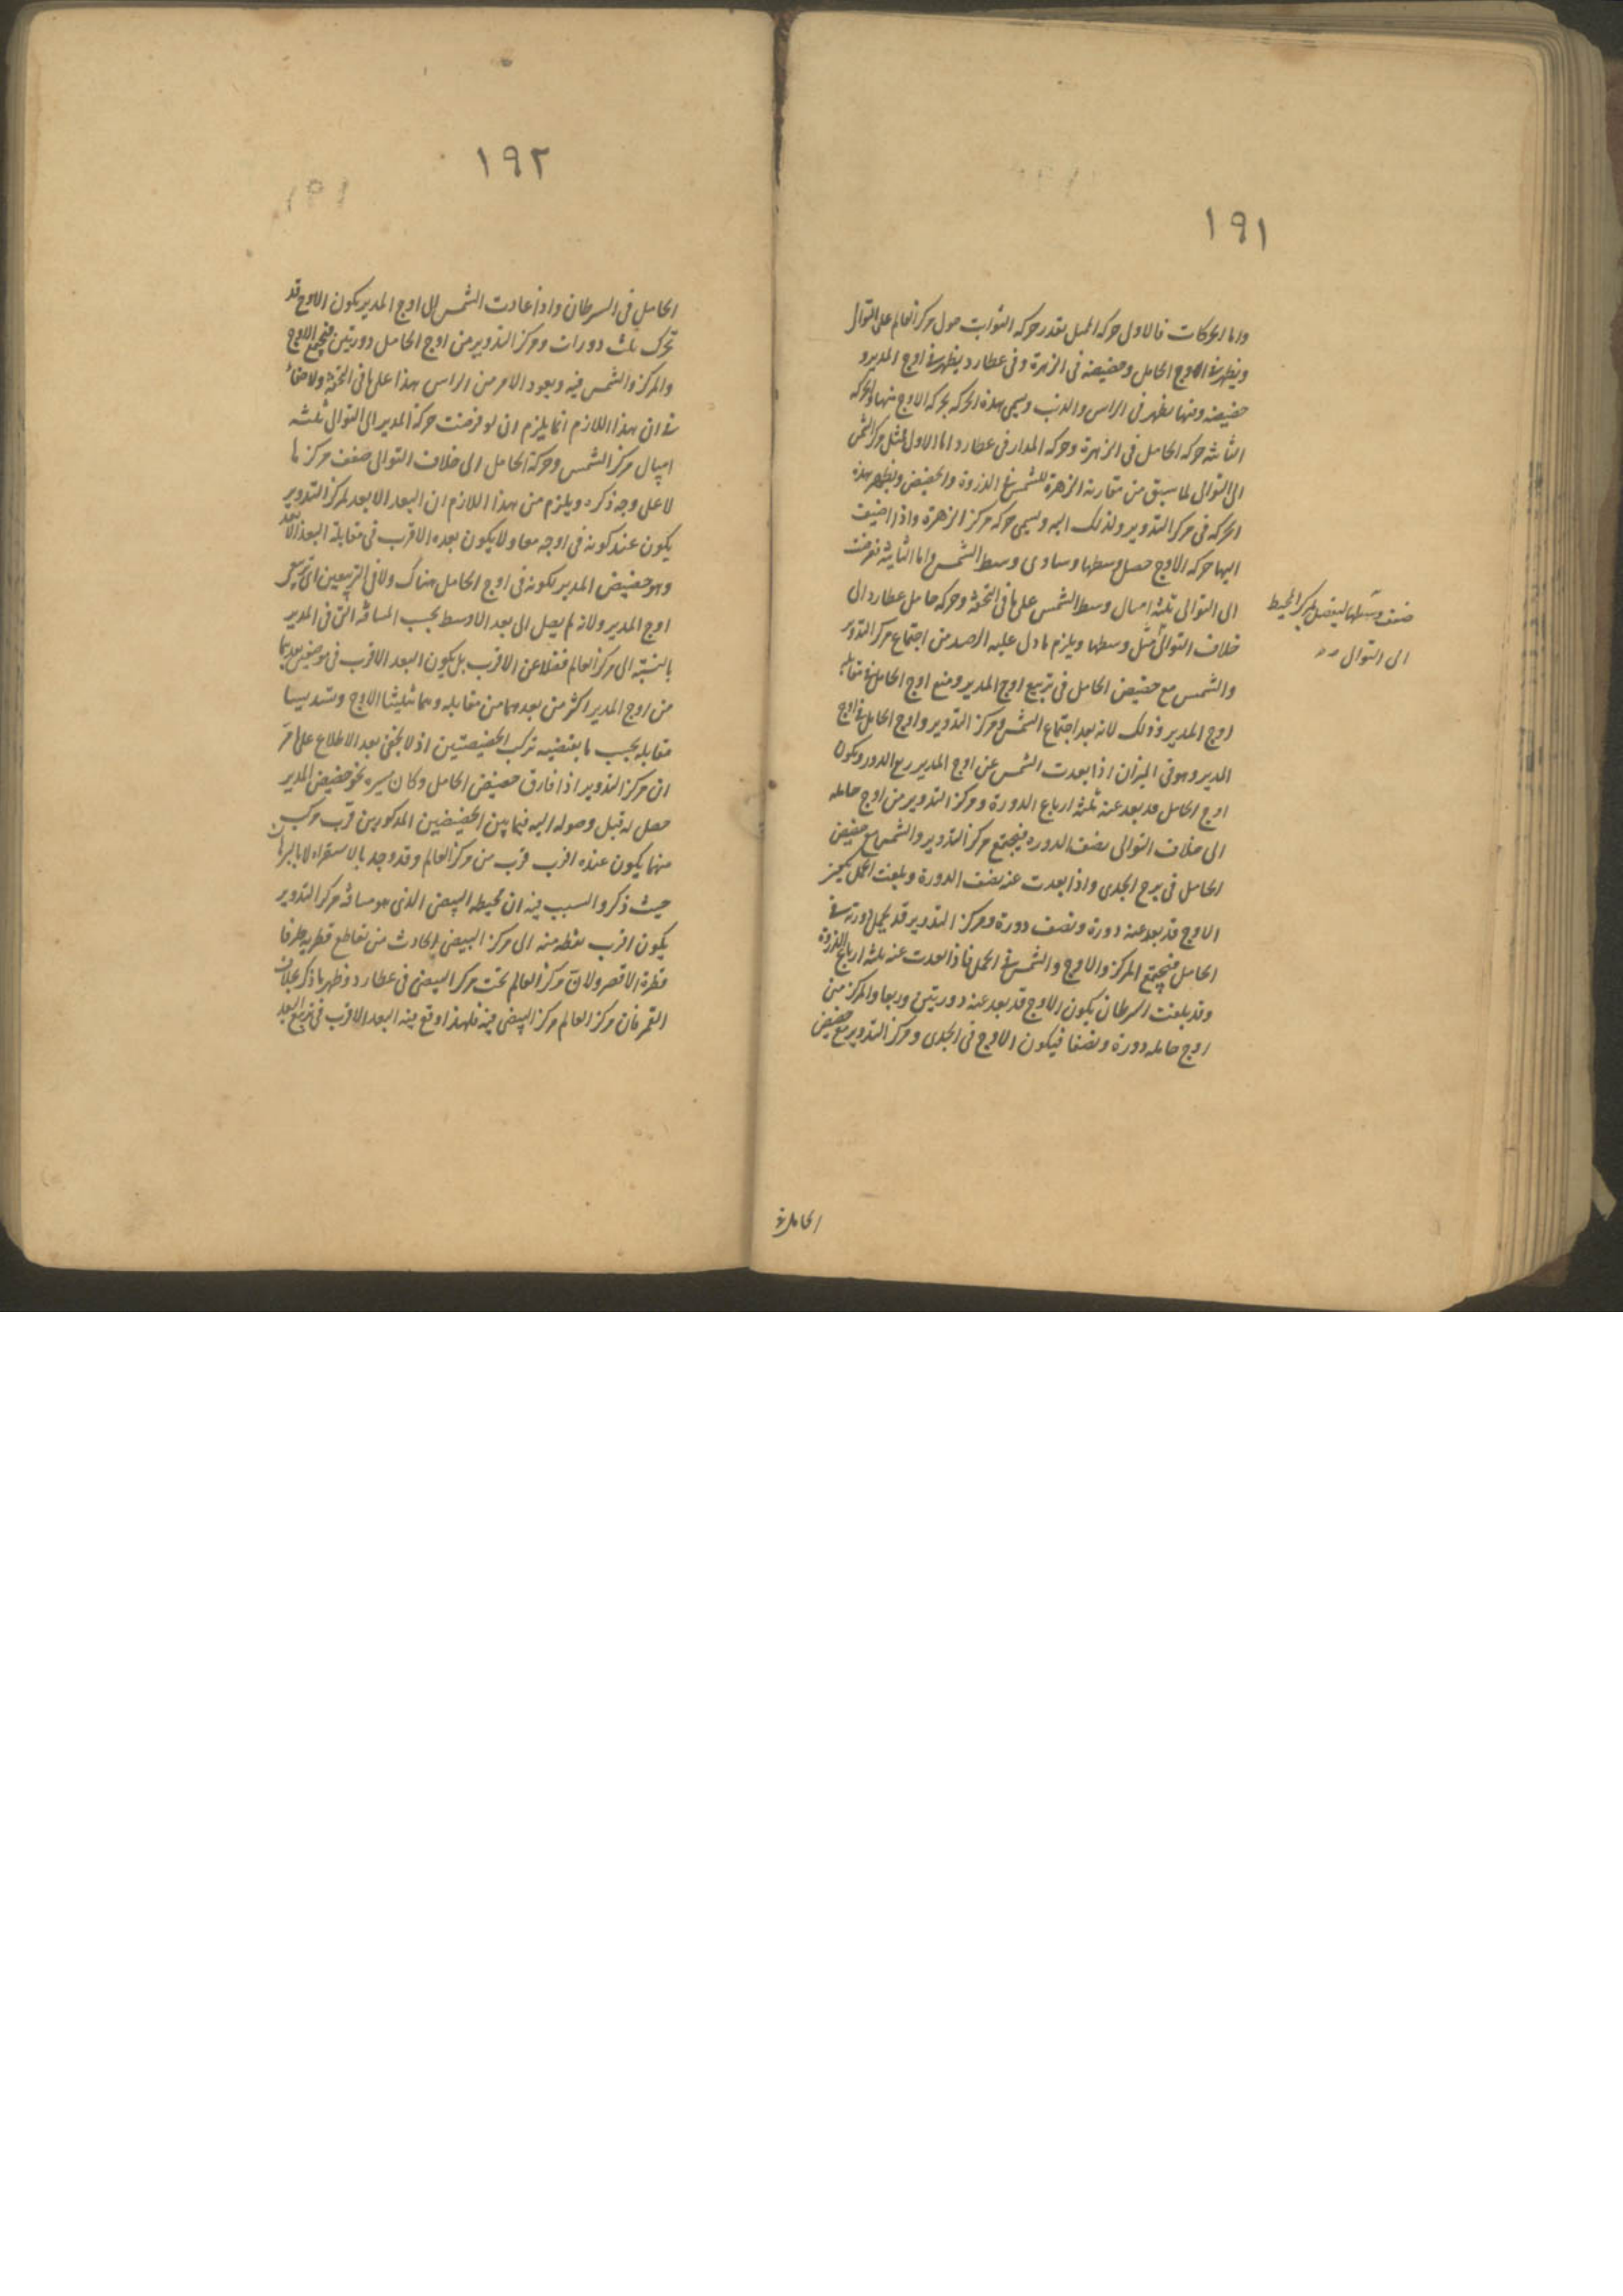 ١٩١
واما الحركات فالاول حركه الممثل بقدر حركه الثوابت حول مركز العالم على التوالى
ويظهر فى الاوج الحامل وحضيضه فى الزهرة وفى عطارد يظهر فى اوج المدير و
حضيضه ومنها يظهر فى الراس والذنب ويسمى هذه الحركه بحركه الاوج منها والحركه
الثانيه حركه الحامل فى الزهرة وحركه المدار فى عطارد اما الاول فمثل مركز الشمس
الى التوالى لما سبق من مقارنة الزهرة للشمس فى الذروة والحضيض ويظهر هذه
الحركه فى مركز التدوير ولذلك اليه ويسمى حركه مركز الزهرة واذا اضيفت
اليها حركه الاوج حصل وسطها وساوى وسط الشمس واما الثانية فعرضت
الى التوالى ثلثة امثال وسط الشمس على ما فى التحفة وحركه حامل عطارد الى
خلاف التوالى مثل وسطها ويلزم ما دل عليه الرصد من اجتماع مركز التدوير
والشمس مع حضيض الحامل فى تربيع اوج المدير ومع اوج الحامل فى مقابلة
اوج المدير وذلك لانه بعد اجتماع الشمس ومركز التدوير واوج الحامل فى اوج
المدير وهو فى الميزان اذا بعدت الشمس عن اوج المدير ربع الدور ويكون
اوج الحامل قد بعد عنه ثلثة ارباع الدورة ومركز التدوير من اوج حامله
الى خلاف التوالى نصف الدوره فيجتمع مركز التدوير والشمس مع حضيض
الحامل فى برج الجدى واذا بعدت عنه نصف الدورة وبلغت الحمل يكون
الاوج قد بعد عنه دورة ونصف دورة ومركز التدوير قد يكمل دورته فى
الحامل فيجتمع المركز والاوج والشمس فى الحمل فاذا بعدت عنه ثلثه ارباع الدورة
وقد بلغت السرطان يكون الاوج قد بعد عنه دورتين وربعا والمركز من
اوج حامله دورة ونصفا فيكون الاوج فى الجدى ومركز التدوير مع حضيض
ضعف وسطها ليفضل مركز المحيط
الى التوالى
الحامل فى
١٩٢
الحامل فى السرطان واذا عادت الشمس الى اوج المدير يكون الاوج قد
تحرك ثلث دورات ومركز التدوير من اوج الحامل دورتين فيجتمع الاوج
والمركز والشمس فيه ويعود الامر من الراس هذا على ما فى التحفة ولا خفاء
فى ان هذا اللازم انما يلزم ان لو فرضت حركة المدير الى التوالى ثلثه
امثال مركز الشمس وحركة الحامل الى خلاف التوالى ضعف مركزها
لا على وجه ذكره ويلزم من هذا اللازم ان البعد الابعد لمركز التدوير
يكون عند كونه فى اوجه معا ولا يكون بعده الاقرب فى مقابلة البعد الابعد
وهو حضيض المدير لكونه فى اوج الحامل هناك ولا فى التربيعين اى تربيعى
اوج المدير ولانه لم يصل الى بعد الاوسط بحسب المسافة التى فى المدير
بالنسبة الى مركز العالم فضلا عن الاقرب بل يكون البعد الاقرب فى موضعين بعدهما
من اوج المدير اكثر من بعدهما من مقابله وهما تثليثا الاوج وتسديسا
مقابله بحسب ما يقتضيه تركب الحضيضين اذ لا يخفى بعد الاطلاع على ما مر
ان مركز التدوير اذا فارق حضيض الحامل وكان سيره نحو حضيض المدير
حصل له قبل وصوله اليه فيما بين الحضيضين المذكورين قرب مركب
منهما يكون عنده اقرب قرب من مركز العالم وقد وجد بالاستقراء لا بالبرهان
حيث ذكروا السبب فيه ان محيطه البيضى الذى هو مسافة مركز التدوير
يكون اقرب نقطه منه الى مركز البيضى الحادث من تقاطع قطريه طرفا
قطرة الاقصر ولان مركز العالم تحت مركز البيضى فى عطارد وظهر ما ذكر بخلاف
القمر فان مركز العالم مركز البيضى فيه فلهذا وقع فيه البعد الاقرب فى تربيع البعد